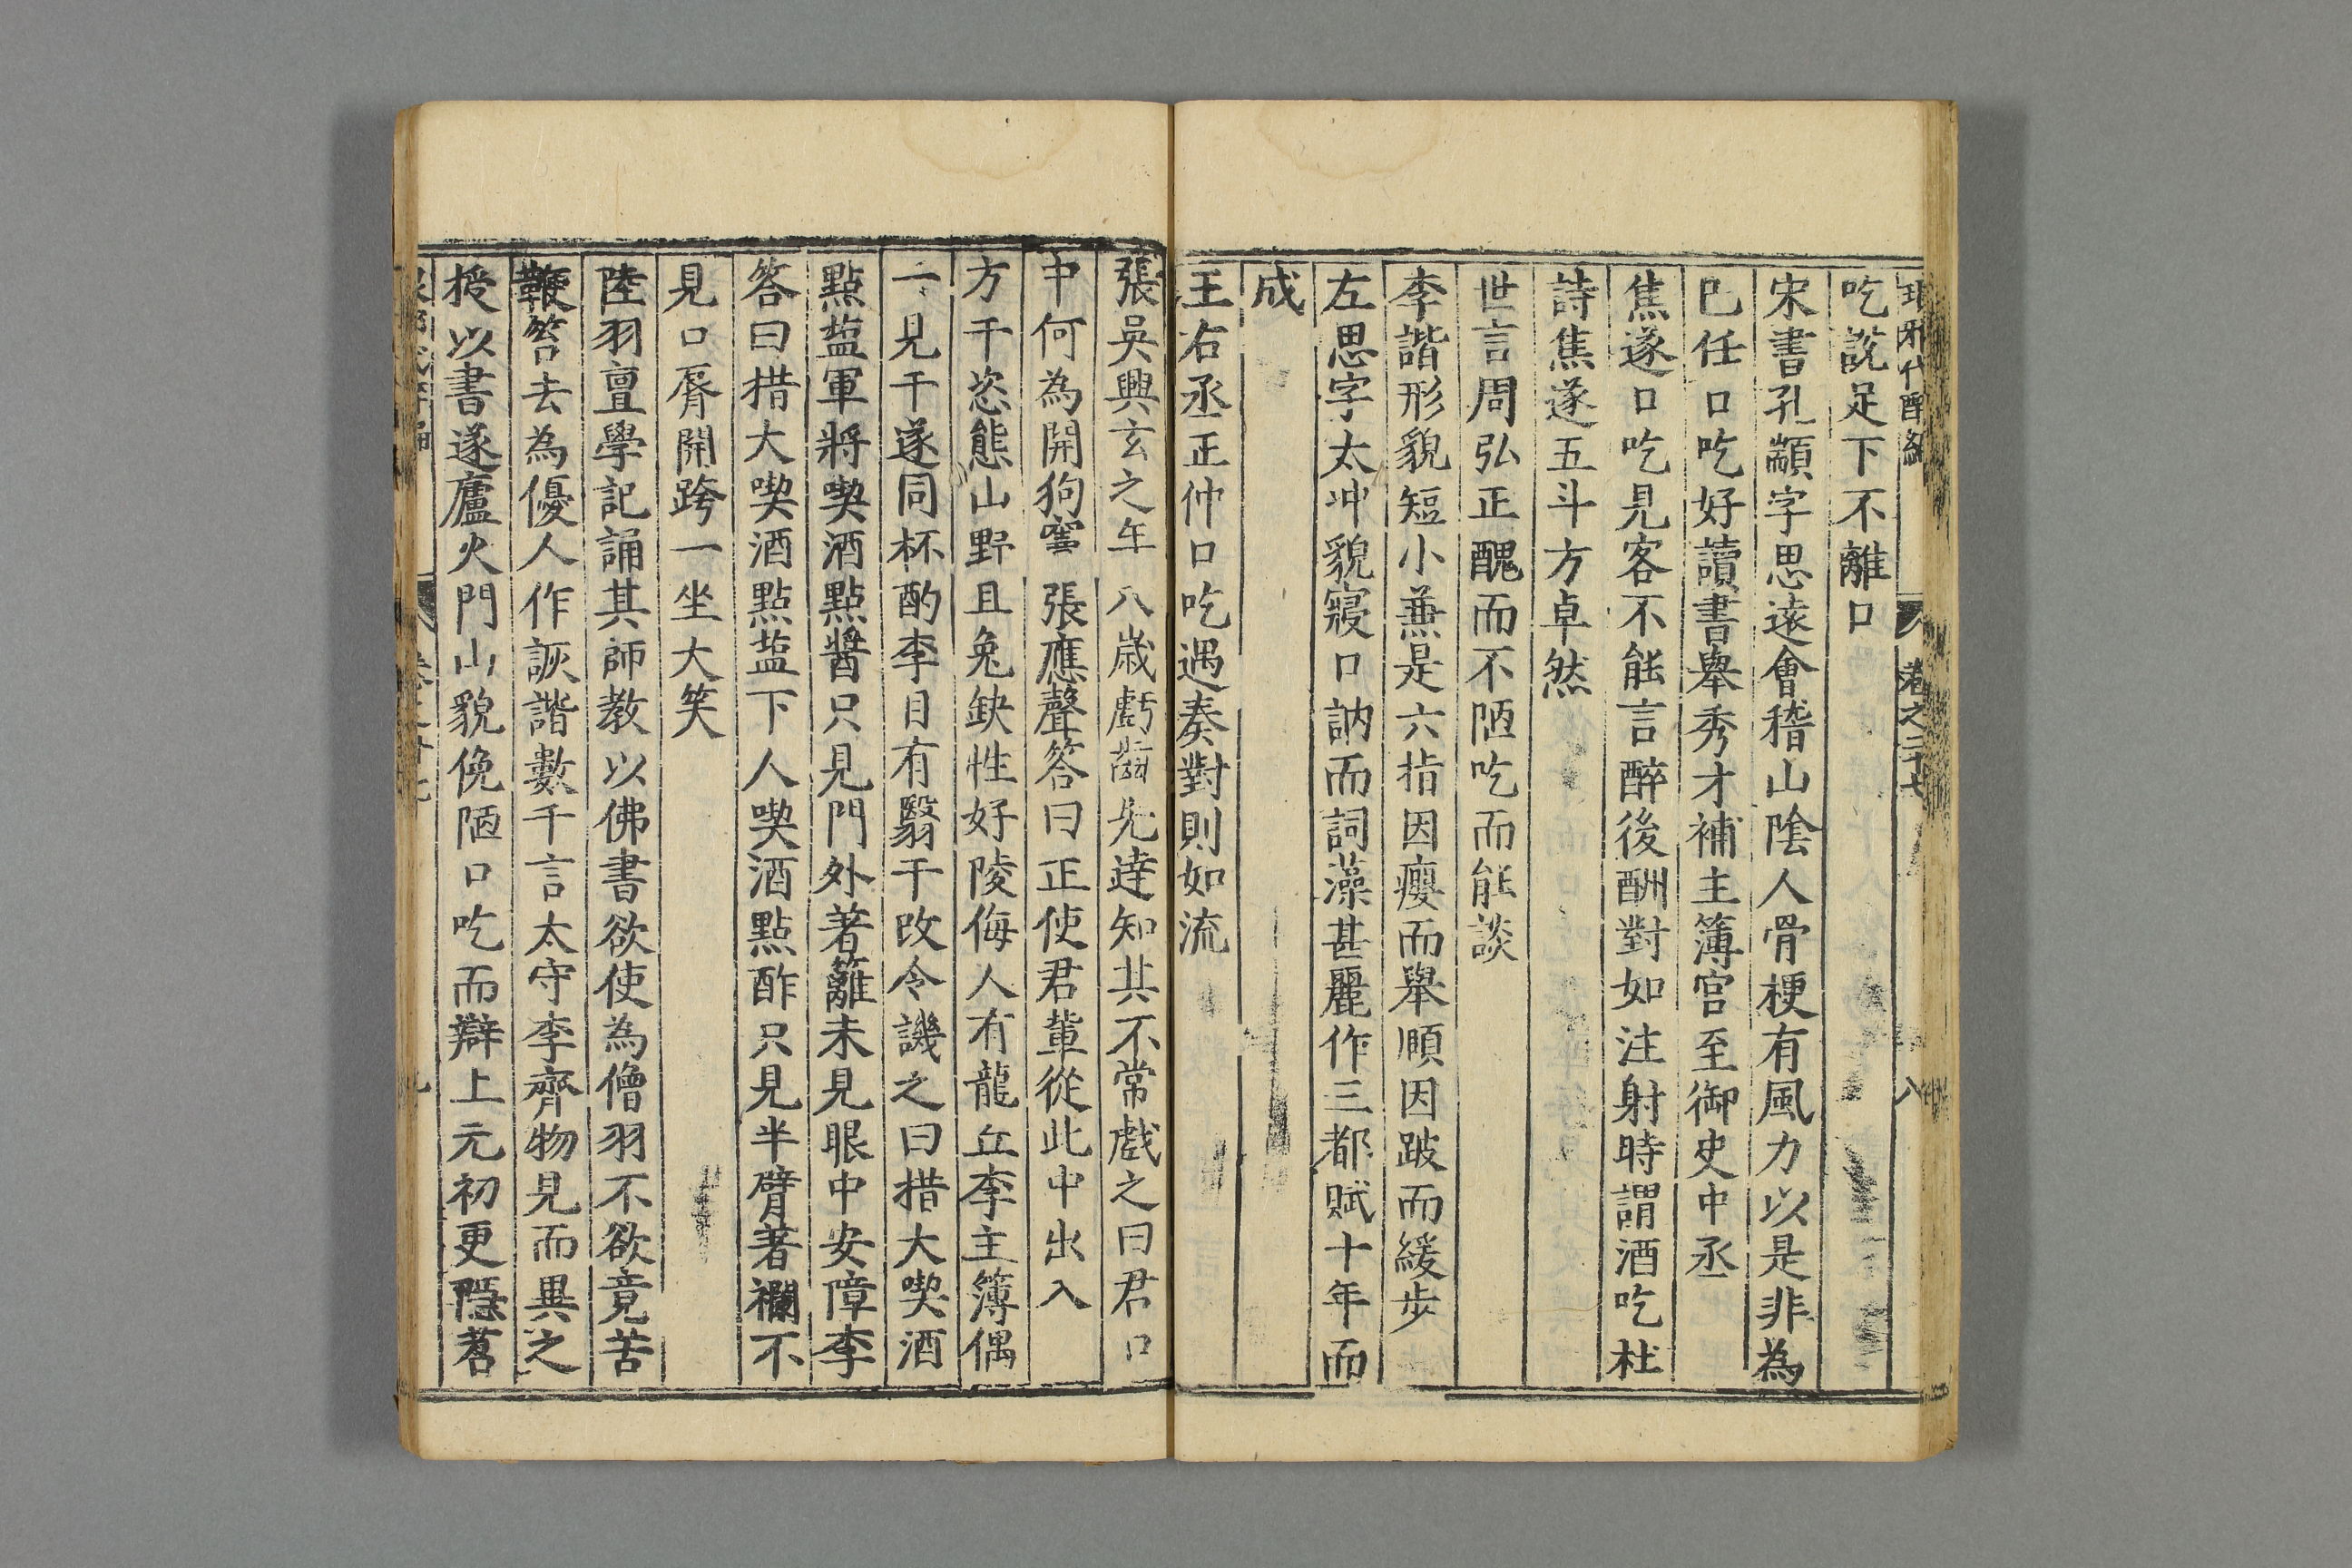 琅邪代醉編 卷之二十七 八
吃說足下不離口
宋書孔顗字思遠會稽山陰人骨梗有風力以是非為
巳任口吃好讀書舉秀才補主簿官至御史中丞
焦遂口吃見客不能言醉後酬對如注射時謂酒吃杜
詩焦遂五斗方卓然
世言周弘正醜而不陋吃而能談
李諧形貌短小兼是六指因癭而舉順因跛而緩步
左思字太冲貌寢口訥而詞藻甚麗作三都賦十年而
成
王右丞正仲口吃遇奏對則如流
張吳興玄之年八歲虧齒先達知其不常戲之曰君口
中何為開狗竇張應聲答曰正使君輩從此中出入
方干恣態山野且兔缺性好陵侮人有龍丘李主簿偶
一見干遂同杯酌李目有翳干改令譏之曰措大喫酒
點盐軍將喫酒點醬只見門外著籬未見眼中安障李
答曰措大喫酒點盐下人喫酒點酢只見半臂著襴不
見口脣開跨一坐大笑
陸羽亶學記誦其師教以佛書欲使為僧羽不欲竟苦
鞭笞去為優人作詼諧數千言太守李齊物見而異之
授以書遂廬火門山貌侻陋口吃而辯上元初更隱苕